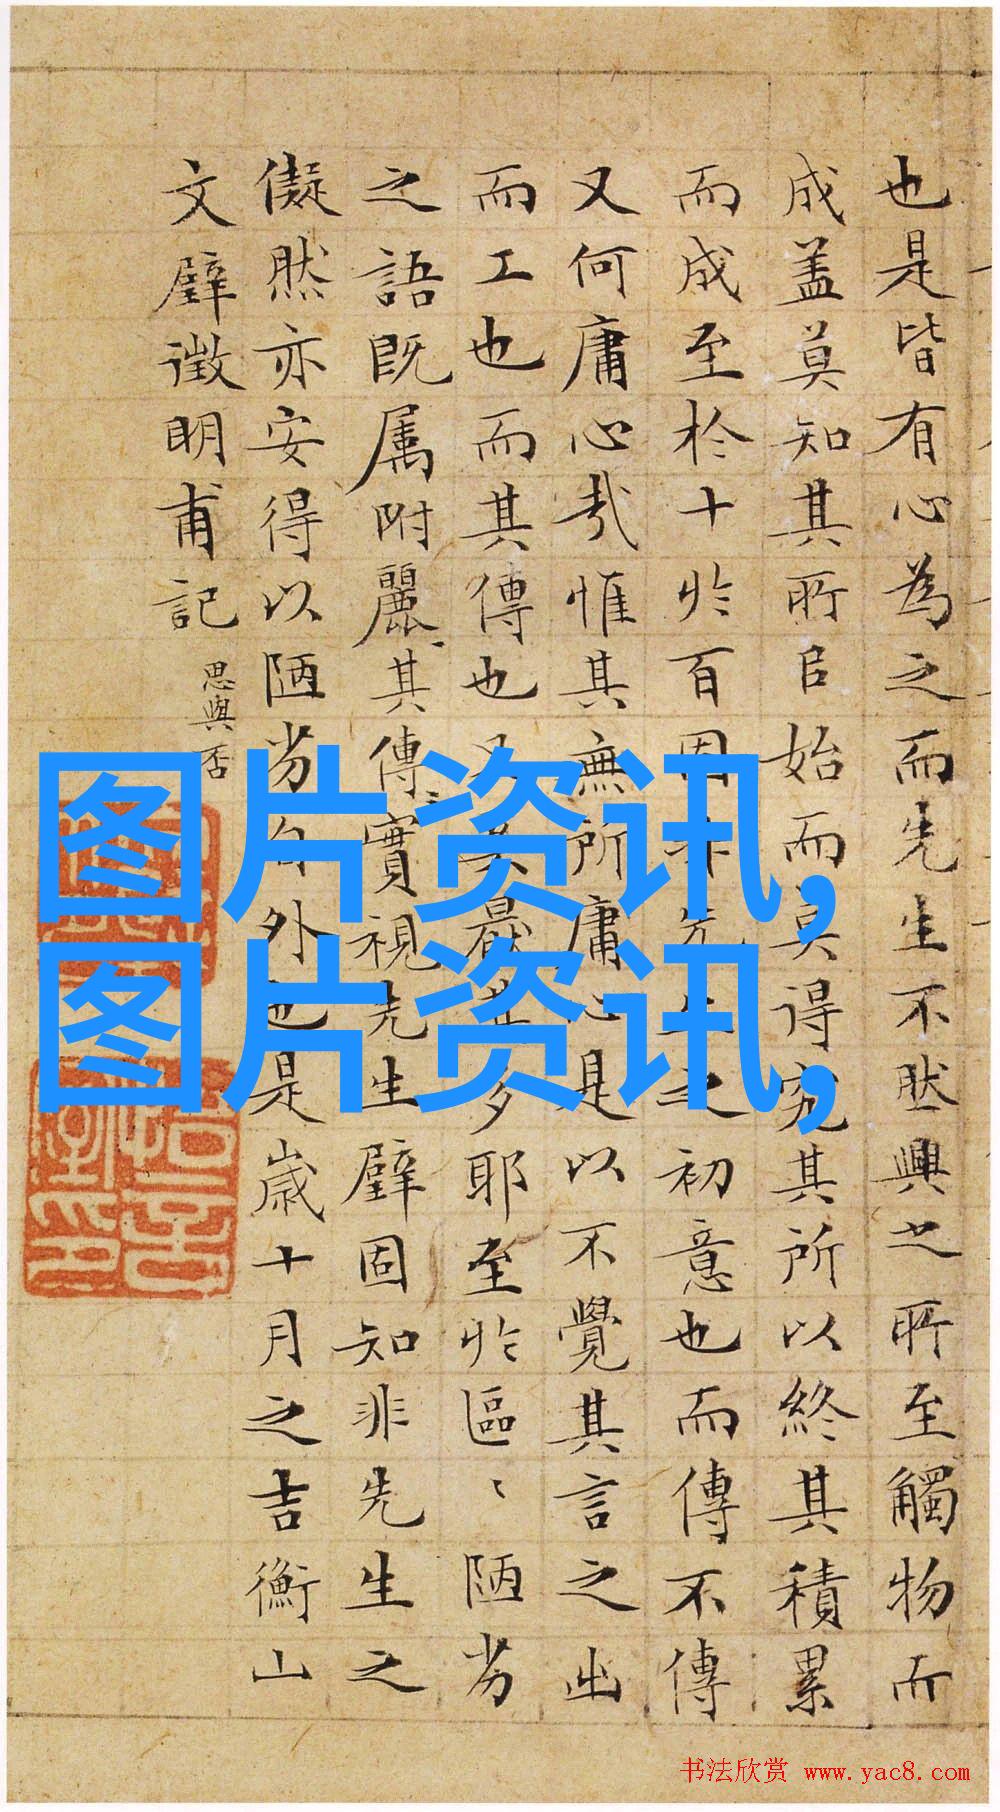 也是皆有心為之而先生不然興之所至觸物而
成盖莫知其所自始而莫得究其所以終其積累
而成至於十於百固非先生之初意也而傳不傳
又何庸心哉惟其無所庸心是以不覺其言之出
而工也而其傳也又奚厭其多耶至於區〻陋劣
之語既属附麗其傳實視先生璧固知非先生之
儗然亦安得以陋劣自外也是歳十月之吉衡山
文璧徵明甫記
思與否
图片资讯,
图片资讯,
书法欣赏 www.yac8.com